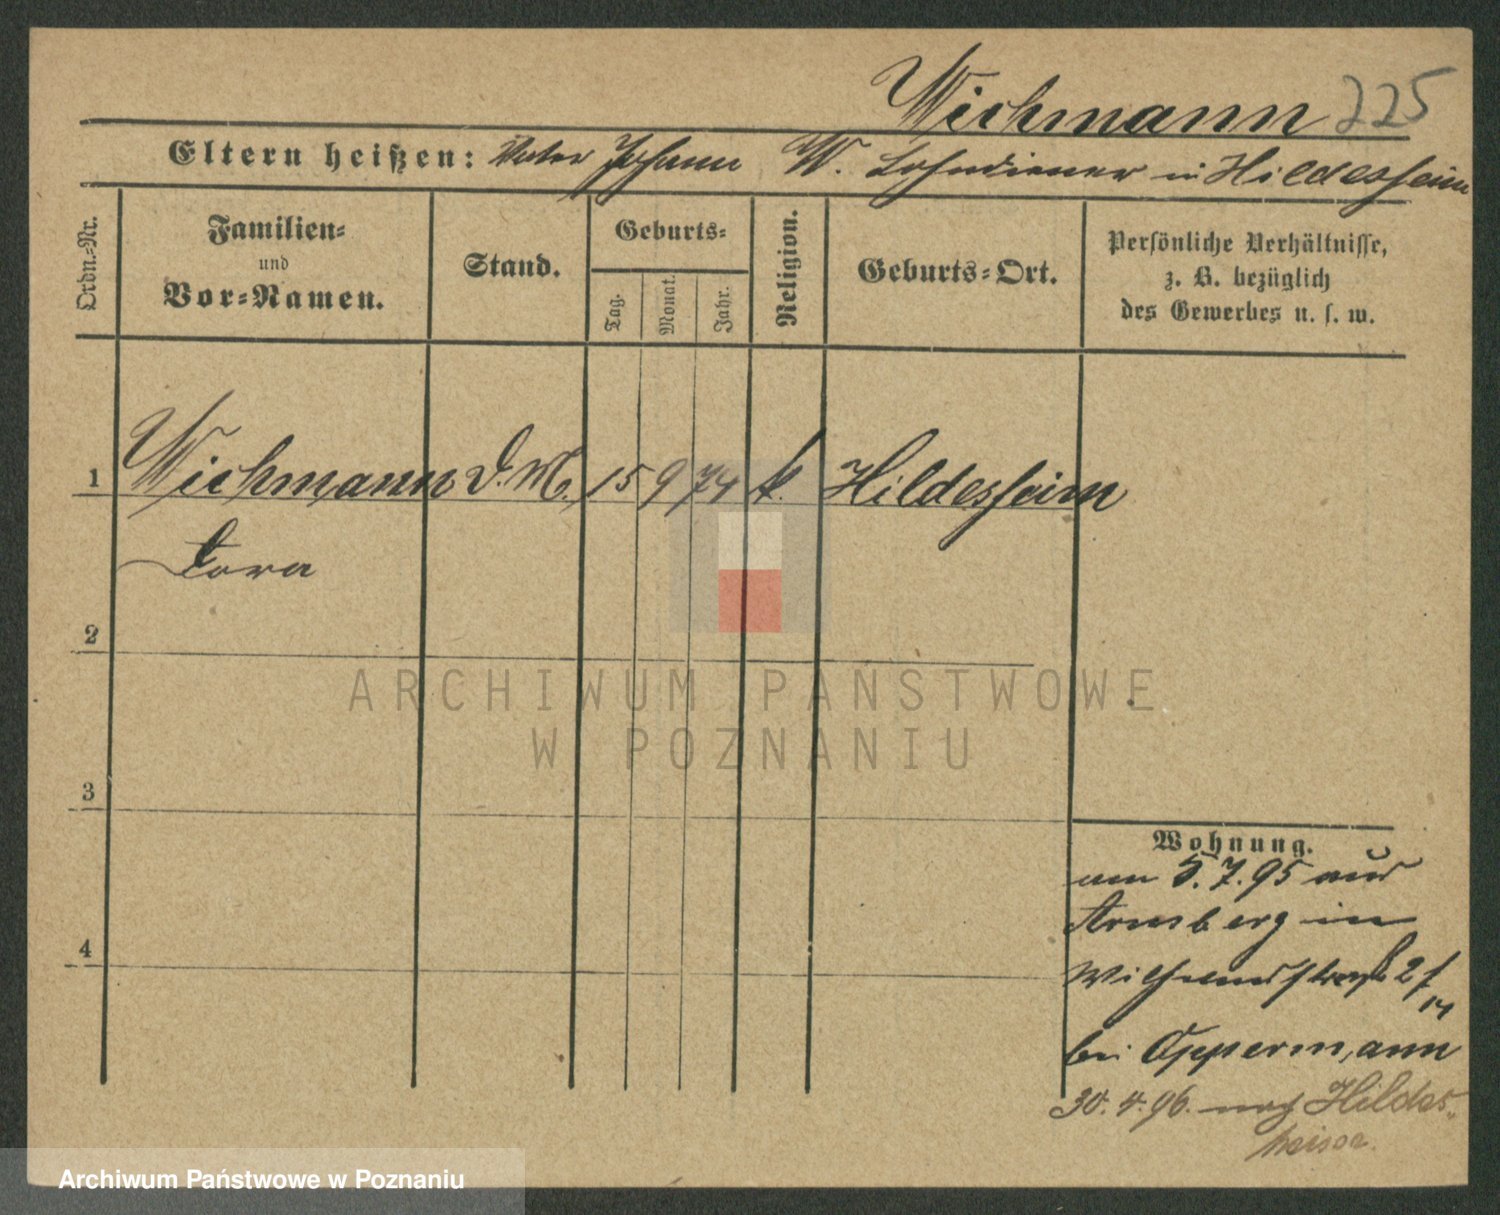 Wichmann 225
Eltern heißen: Vater Johann W. Lohndiener in Hildesheim
Ordn.-Nr.
Familien-
und
Vor-Namen.
Stand.
Geburts-
Tag.
Monat.
Jahr.
Religion.
Geburts-Ort.
Persönliche Verhältnisse,
z. B. bezüglich
des Gewerbes u. s. w.
1 Wichmann D. M. 15 9 74 k. Hildesheim
Dora
2
3
4
Wohnung.
am 5.7.95 aus
Arnsberg in
Wilhelmstraße 2
bei Oppermann
30.4.96. nach Hildes-
heim
ARCHIWUM PAŃSTWOWE
W POZNANIU
Archiwum Państwowe w Poznaniu